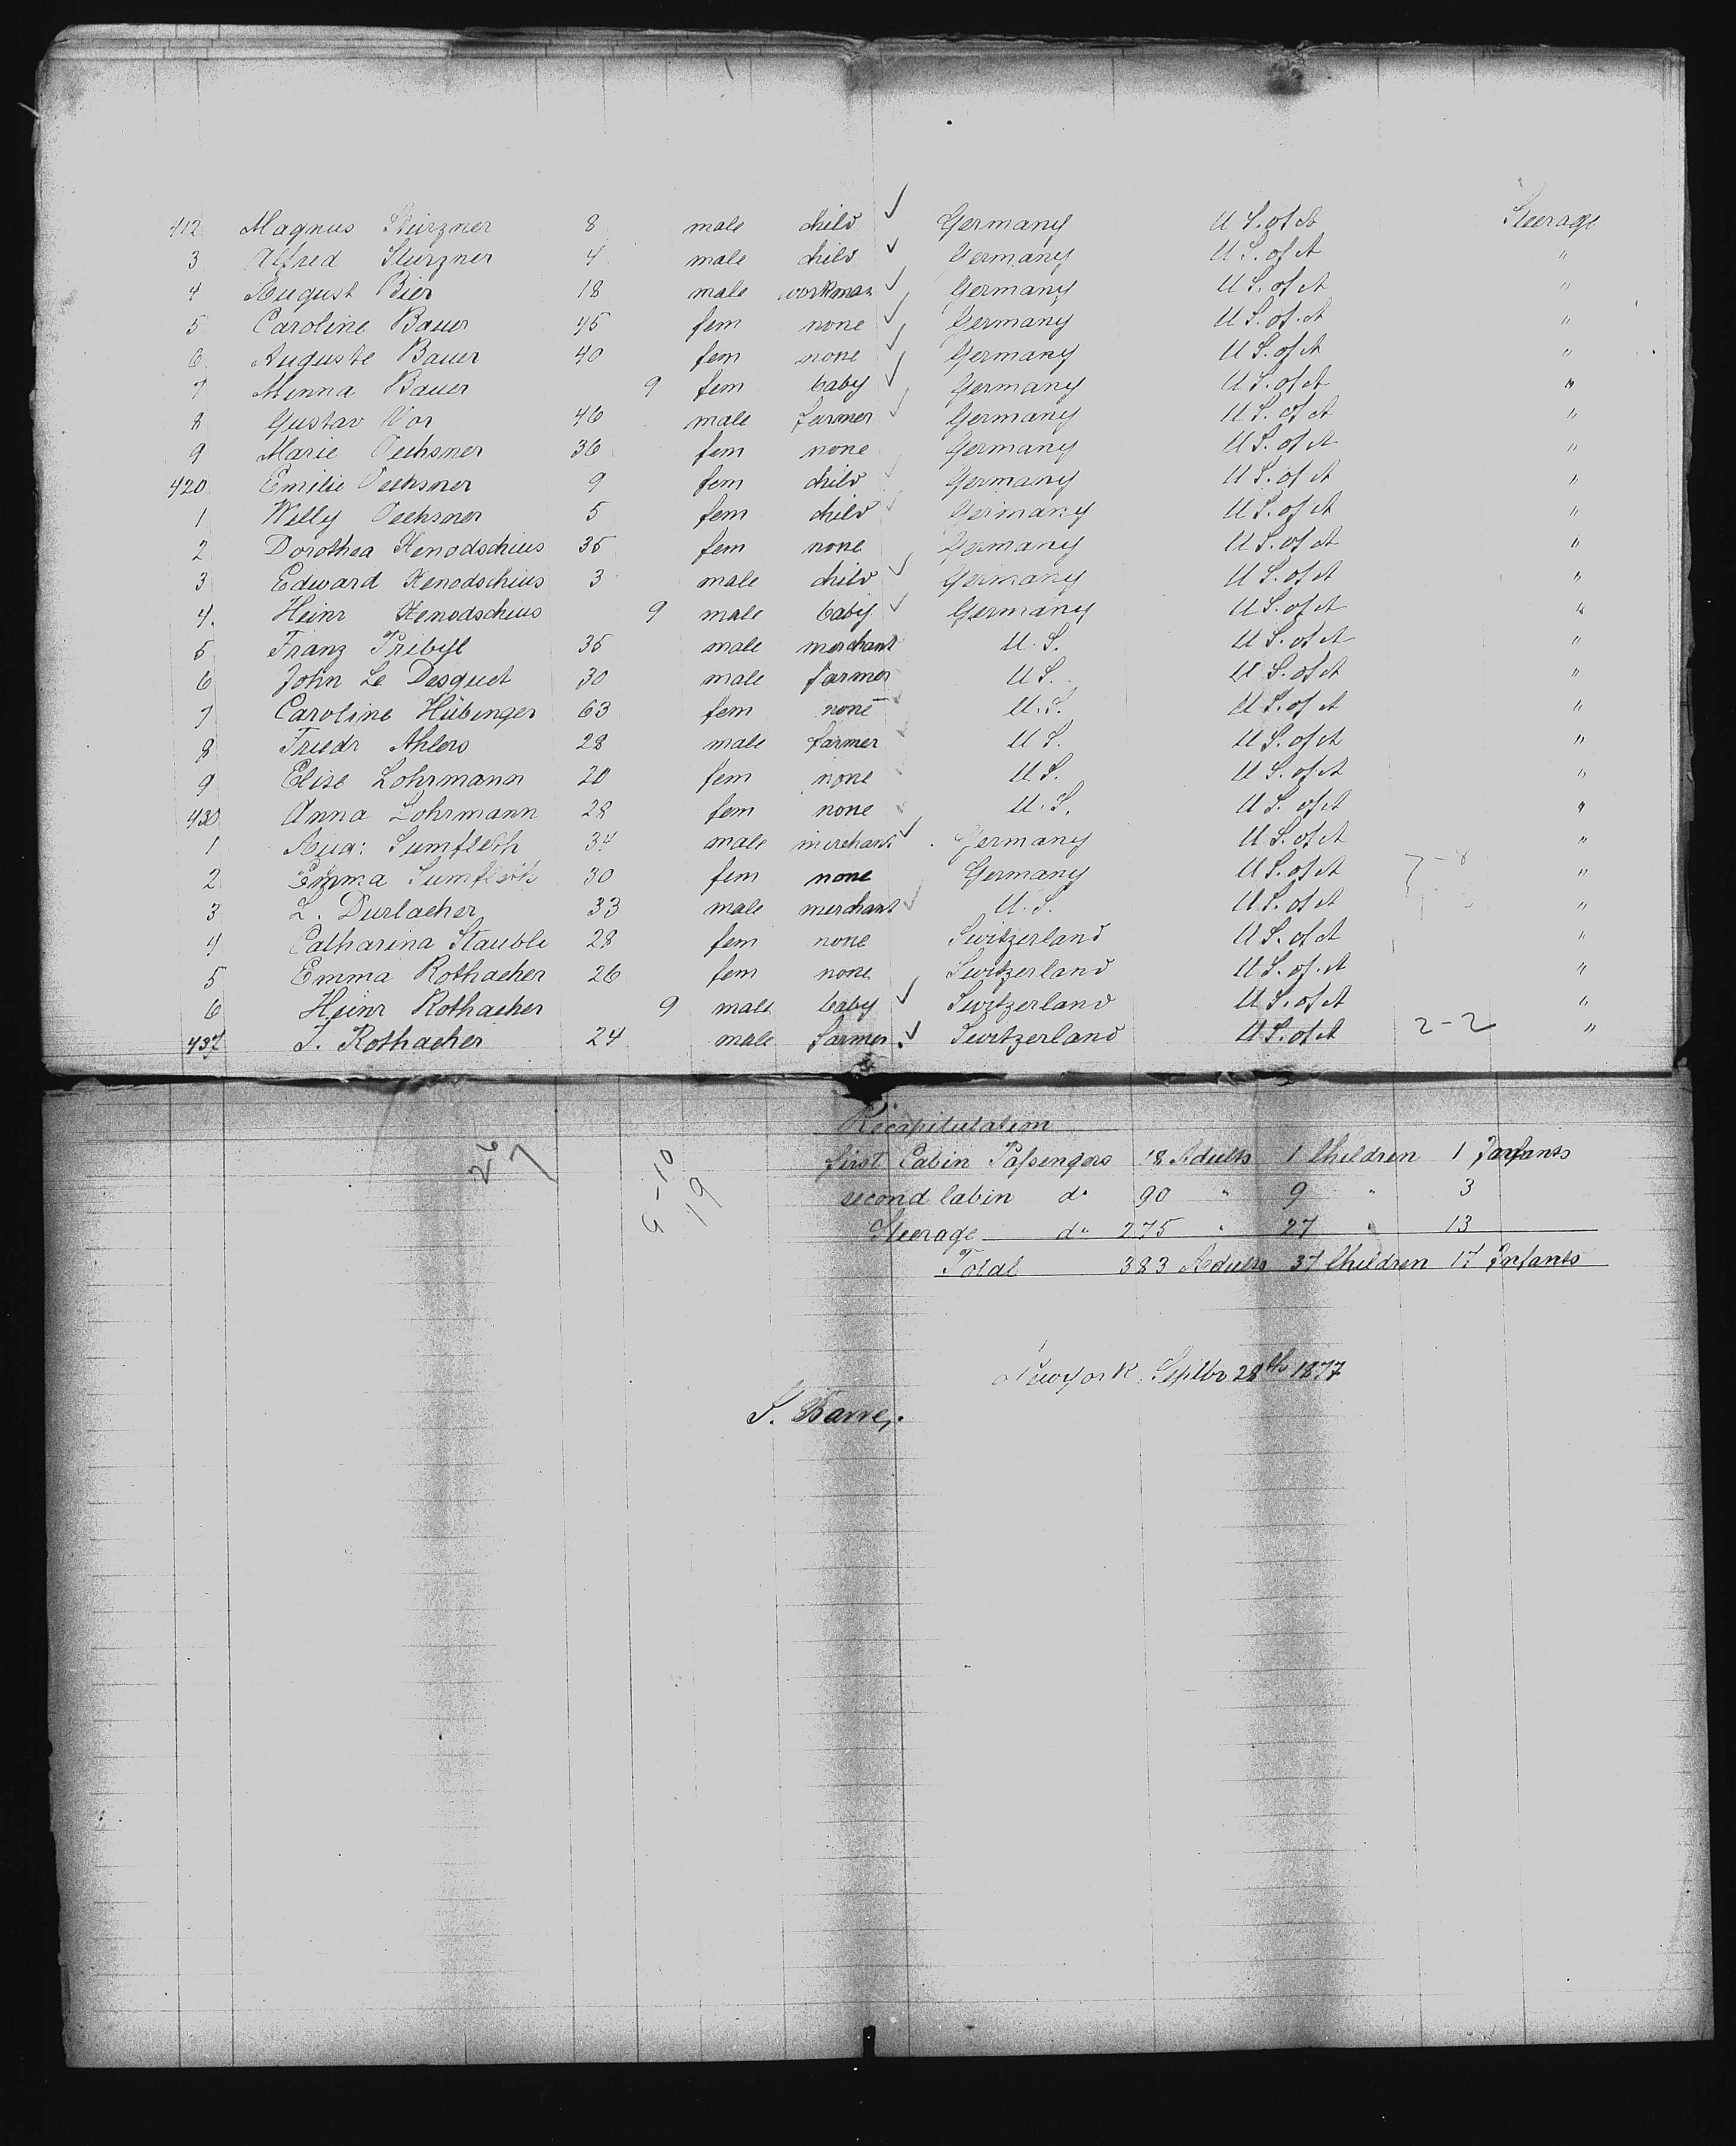 412 Magnus Sturzner 8 male child ✓ Germany U S. of A Steerage
3 Alfred Sturzner 4 male child ✓ Germany U S. of A "
4 August Bier 18 male workman ✓ Germany U S. of A "
5 Caroline Bauer 45 fem none ✓ Germany U S. of A "
6 Auguste Bauer 40 fem none ✓ Germany U S. of A "
7 Minna Bauer 9 fem baby ✓ Germany U S. of A "
8 Gustav Vor 46 male farmer ✓ Germany U S. of A "
9 Marie Oechsner 36 fem none Germany U S. of A "
420 Emilie Oechsner 9 fem child ✓ Germany U S. of A "
1 Willy Oechsner 5 fem child ✓ Germany U S. of A "
2 Dorothea Henodschius 35 fem none Germany U S. of A "
3 Edward Henodschius 3 male child ✓ Germany U S. of A "
4. Heinr Henodschius 9 male baby ✓ Germany U S. of A "
5 Franz Pribyl 35 male merchant U. S. U S. of A "
6 John Le Desquet 30 male farmer U S. U S. of A "
7 Caroline Hübinger 63 fem none U. S. U S. of A "
8 Friedr Ahlers 28 male farmer U S. U S. of A "
9 Elise Lohrmann 20 fem none U. S. U S. of A "
430 Anna Lohrmann 28 fem none U. S. U S. of A "
1 Aug: Sumfleth 34 male merchant ✓ Germany U S. of A "
2 Emma Sumfleth 30 fem none Germany U S. of A 7-8 "
3 L. Durlacher 33 male merchant ✓ U. S. U S. of A "
4 Catharina Staubli 28 fem none Switzerland U S. of A "
5 Emma Rothacher 26 fem none Switzerland U S. of A "
6 Heinr Rothacher 9 male baby ✓ Switzerland U S. of A "
437 J. Rothacher 24 male farmer. ✓ Switzerland U S. of A 2-2 "
Recapitulation
first Cabin Passengers 18 Adults 1 Children 1 Infants
second Cabin do 90 " 9 " 3
Steerage do 275 " 27 " 13
Total 383 Adults 37 Children 17 Infants
26
7
9-10
19
Newyork. Septbr 28th 1877
J. Barre.